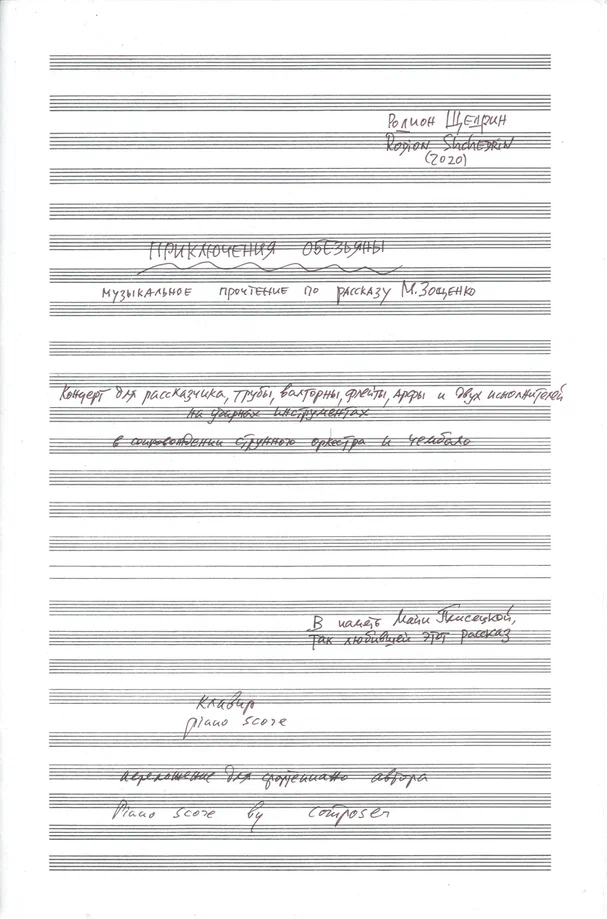 Родион Щедрин
Rodion Shchedrin
(2020)
ПРИКЛЮЧЕНИЯ ОБЕЗЬЯНЫ
музыкальное прочтение по рассказу М.Зощенко
Концерт для рассказчика, трубы, валторны, флейты, арфы и двух исполнителей
на ударных инструментах
в сопровождении струнного оркестра и чембало
В память Майи Плисецкой,
так любившей этот рассказ
клавир
piano score
переложение для фортепиано автора
Piano score by composer